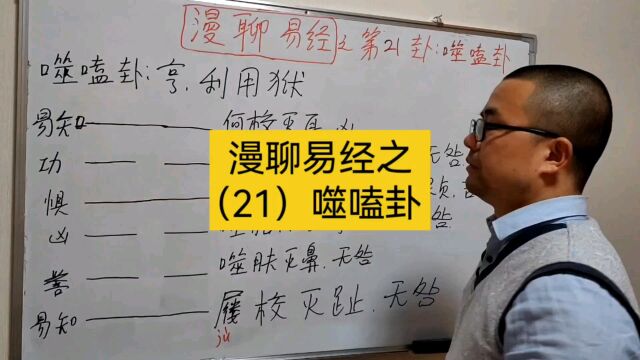 漫聊易经之第21卦:噬嗑卦
噬嗑卦:亨,利用狱
易知 何校灭耳,凶
功 无咎
惧
凶
誉 噬肤灭鼻,无咎
易知 屦校灭趾,无咎
jù
漫聊易经之
(21)噬嗑卦